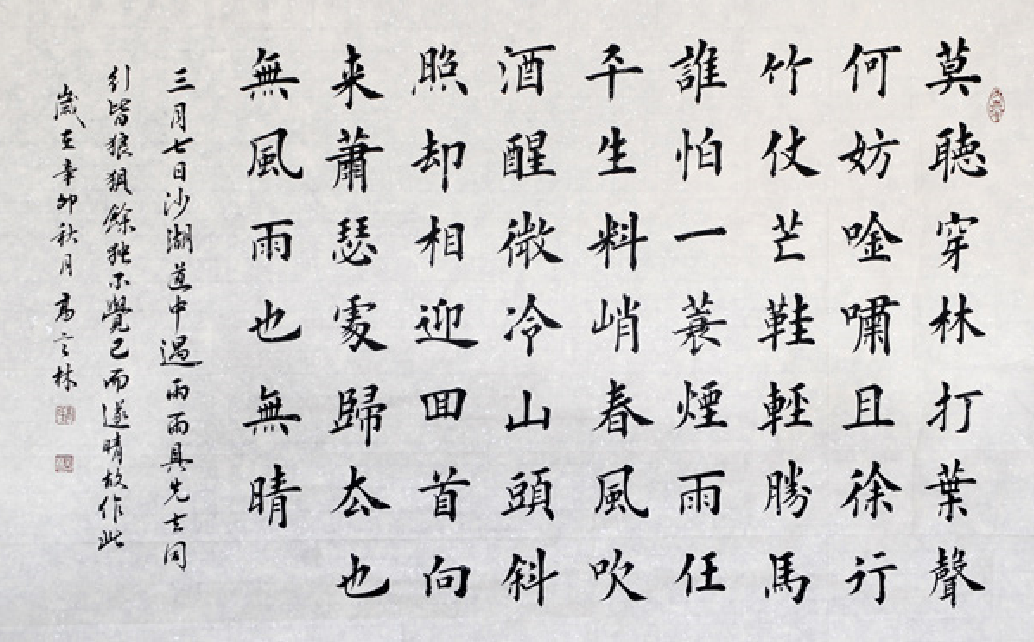 莫聽穿林打葉聲
何妨唫嘯且徐行
竹仗芒鞋輕勝馬
誰怕一蓑煙雨任
平生料峭春風吹
酒醒微冷山頭斜
照却相迎囬首向
来蕭瑟處歸去也
無風雨也無晴
三月七日沙湖道中遇雨雨具先去同
行皆狼狽餘独不覺已而遂晴故作此
歲在辛卯秋月